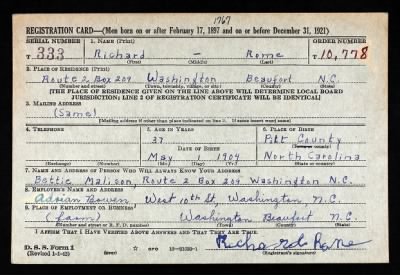 1767
REGISTRATION CARD—(Men born on or after February 17, 1897 and on or before December 31, 1921)
SERIAL NUMBER 1. NAME (Print) ORDER NUMBER
T 333 Richard - Rome T 10,778
(First) (Middle) (Last)
2. PLACE OF RESIDENCE (Print)
Route 2 Box 209 Washington Beaufort N.C.
(Number and street) (Town, township, village, or city) (County) (State)
[THE PLACE OF RESIDENCE GIVEN ON THE LINE ABOVE WILL DETERMINE LOCAL BOARD
JURISDICTION; LINE 2 OF REGISTRATION CERTIFICATE WILL BE IDENTICAL]
3. MAILING ADDRESS
(Same)
[Mailing address if other than place indicated on line 2. If same insert word same]
4. TELEPHONE 5. AGE IN YEARS 6. PLACE OF BIRTH
37 Pitt County
DATE OF BIRTH (Town or county)
May 1 1904 North Carolina
(Exchange) (Number) (Mo.) (Day) (Yr.) (State or country)
7. NAME AND ADDRESS OF PERSON WHO WILL ALWAYS KNOW YOUR ADDRESS
Bettie Malison, Route 2 Box 209 Washington N.C.
8. EMPLOYER'S NAME AND ADDRESS
Adrian Bowen, West 10th St, Washington, N.C.
9. PLACE OF EMPLOYMENT OR BUSINESS
(farm) Washington Beaufort N.C.
(Number and street or R. F. D. number) (Town) (County) (State)
I AFFIRM THAT I HAVE VERIFIED ABOVE ANSWERS AND THAT THEY ARE TRUE.
Richard Rome
D. S. S. Form 1
(Revised 1-1-42) (over) (Registrant's signature)